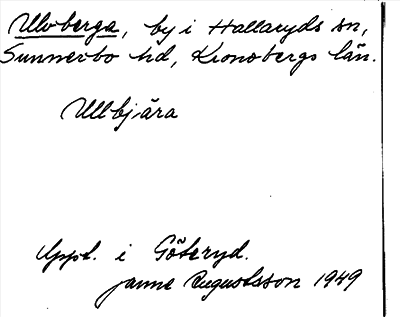 Ulvberga, by i Hallaryds sn,
Sunnerbo hd, Kronobergs län.
Ullbjära
Uppt. i Göteryd.
Janne Augustsson 1949